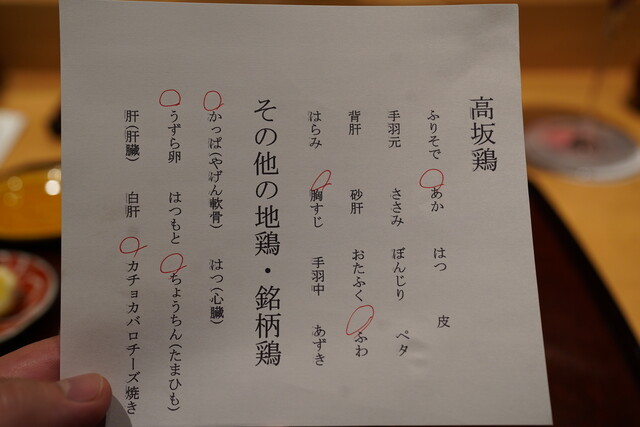 高坂鶏
ふりそで あか はつ 皮
手羽元 ささみ ぼんじり ペタ
背肝 砂肝 おたふく ふわ
はらみ 胸すじ 手羽中 あずき
その他の地鶏・銘柄鶏
かっぱ(やげん軟骨) はつ(心臓)
うずら卵 はつもと ちょうちん(たまひも)
肝(肝臓) 白肝 カチョカバロチーズ焼き